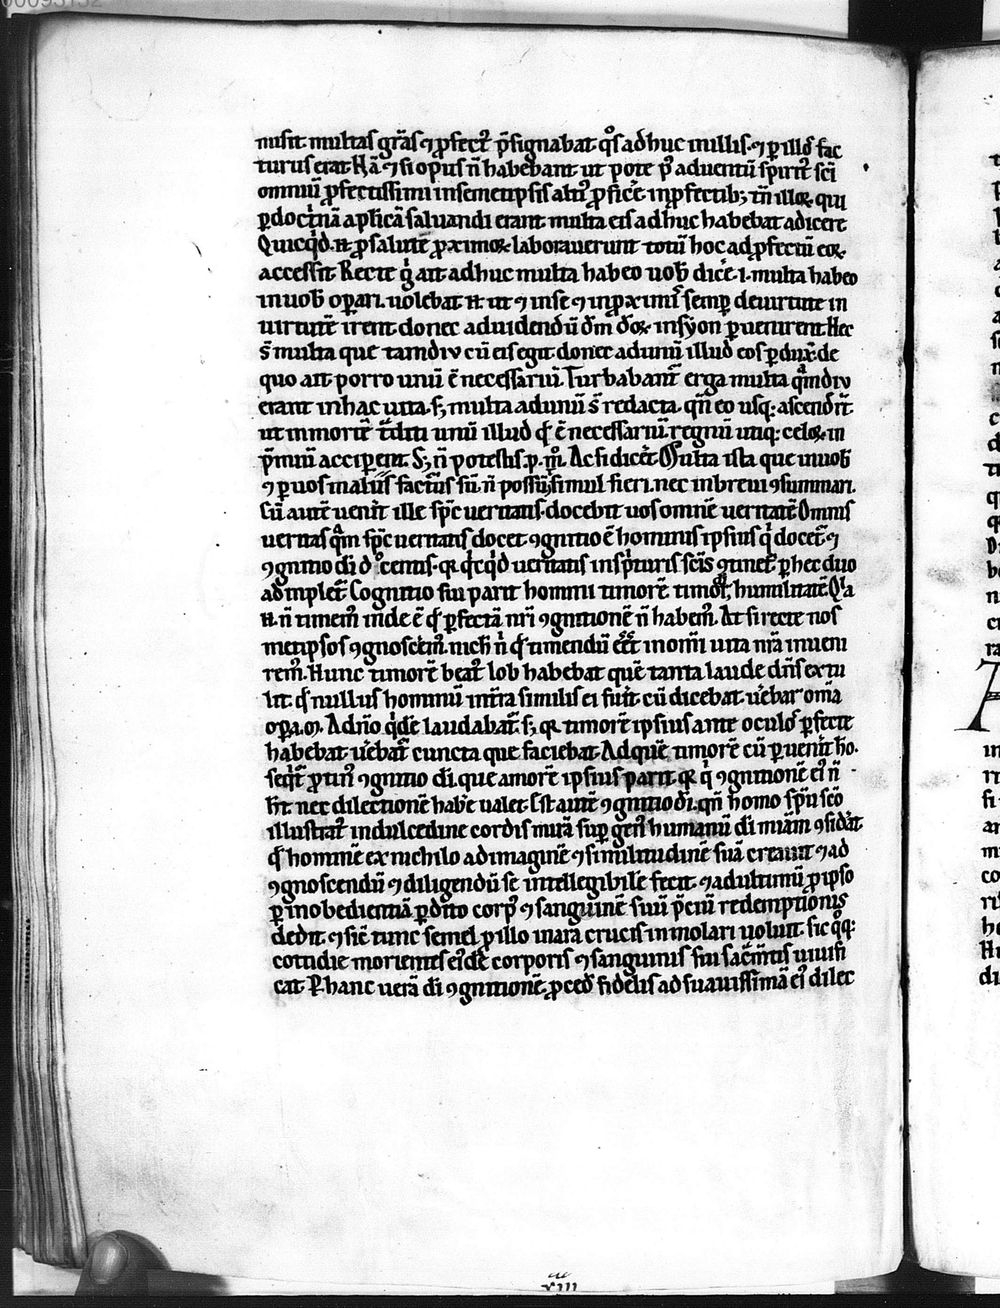 nusit multas gr̄as ⁊ ꝓfect᷒ p̄signabat qᵒs adhuc in illis. ⁊ ꝑ illos fac
turus erat Nā ⁊ si opus n̄ habebant ut pote pꝰ aduentū spiriť sc̄i
omniū ꝓfectissimi in semetipsis altiꝰ ꝓficere in ꝓfectib; tn̄ illoꝝ qui
ꝑ doctͥnā aplicā saluandi erant multa eis adhuc habebat adicere
Quicqͥd. n. ꝓ salute ꝓximoꝝ laborauerunt totū hoc ad ꝓfectū eoꝝ
accessit Recte gͦ ait adhuc multa habeo uob̄ dic̄e .i. multa habeo
in uob̄ oꝑari. uolebat n. ut ⁊ in se ⁊ in ꝓximis semꝑ de uirtute in
uirtutē irent donec ad uidendū dm̄ deoꝝ in syon ꝑuenirent Hec
s̄ multa que tamdiu cū eis egit donec ad unū illud eos ꝑdux̄ de
quo ait porro unū ē necessariū Turbabant᷒ erga multa qͣmdiu
erant in hac uita. s; multa ad unū s̄ redacta. qn̄ eo usq; ascender̄t
ut in mortē t̄diti unū illud qd̄ ē necessariū regnū utiq; celoꝝ in
p̄miū acciꝑent. S; n̄ potestis. p. mͦ. Ac si dicēt Multa ista que in uob̄
⁊ ꝑ uos in aliis factur̄ sū. n̄ possūt simul fieri. nec in breui ꝯsummari.
Cū autē uenit ille sp̄c ueritatis. docebit uos omnē ueritatē Omnis
ueritas qͣm sp̄c ueritatis docet ꝯgnitio ē hominis ipsius qͥ docet᷒ ⁊
ꝯgnitio di docentis. qꝛ qͥcqͥd ueritatis in scͥpturis sc̄is ꝯtinet᷒ ꝑ hec duo
adimplet᷒ Cognitio sui parit homini timorē timor humilitatē Qͥa
n. n̄ timemꝰ inde ē qd̄ ꝑfectā nr̄i ꝯgnitionē n̄ habemꝰ. At si recte nos
metipsos ꝯgnoscerem̄. nich̄ n̄ qd̄ timendū eēt in om̄i uita nr̄a inueni
remꝰ. Hunc timorē beatꝰ Iob habebat quē tanta laude dn̄s extu
lit qd̄ nullus hominū in tr̄ra similis ei fuit cū dicebat u̓ebar om̄ia
oꝑa. m̄. A dn̄o qͥdē laudabat᷒. s; qꝛ timorē ipsius ante oculos ꝑfecte
habebat u̓ebat᷒ cuncta que faciebat. Ad quē timorē cū ꝑuenit hō.
seqͥt᷒ ꝓtinꝰ ꝯgnitio di. que amorē ipsius parit. qꝛ qͥ ꝯgnitionē eiꝰ n̄
h̄t. nec dilectionē hab̓e ualet. Est autē ꝯgnitio di. qn̄ homo sp̄u sc̄o
illustrat᷒ in dulcedine cordis mirā suꝑ genꝰ humanū di mīam ꝯsid̓at
qd̄ hominē ex nichilo ad imaginē ⁊ similitudinē suā creauit ⁊ ad
ꝯgnoscendū ⁊ diligendū se intellegibilē fecit. ⁊ ad ultimū ꝓ ipso
ꝑ inobedientiā ꝑdito corpꝰ ⁊ sanguinē suū p̄ciū redemptionis
dedit. ⁊ sic̄ tunc semel ꝓ illo in ara crucis immolari uoluit. sic qͦq;
cottidie morientes eiꝰdē corporis ⁊ sanguinis sui sac̄mtis uiuifi
cat Ꝑ hanc uerā di ꝯgnitionē ꝓced̄ fidelis ad suauissimā eiꝰ dilec